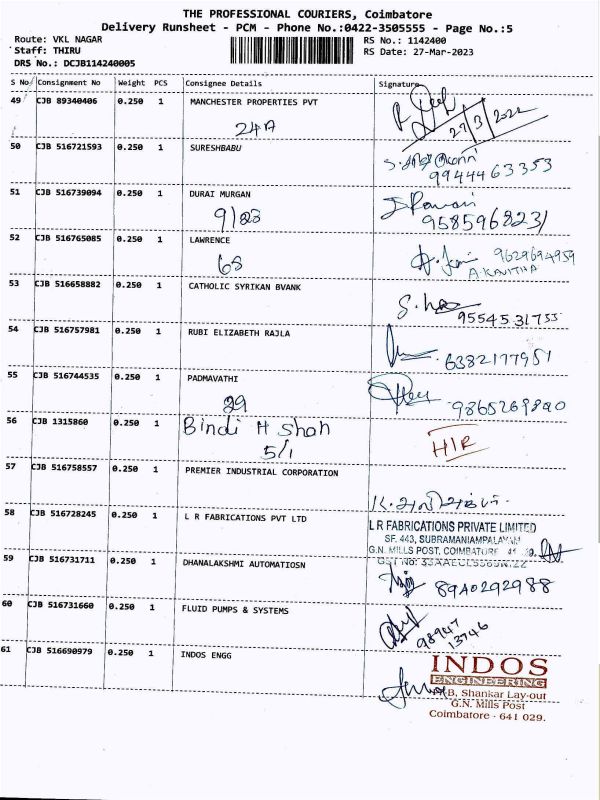 THE PROFESSIONAL COURIERS, Coimbatore
Delivery Runsheet - PCM - Phone No.:0422-3505555 - Page No.:5
Route: VKL NAGAR
RS No.: 1142400
Staff: THIRU
RS Date: 27-Mar-2023
DRS No.: DCJB114240005
S No Consignment No Weight PCS Consignee Details Signature
49 CJB 89340406 0.250 1 MANCHESTER PROPERTIES PVT
24A
27/3/2023
50 CJB 516721593 0.250 1 SURESHBABU
9944463353
51 CJB 516739094 0.250 1 DURAI MURGAN
9/
9585968231
52 CJB 516765085 0.250 1 LAWRENCE
68
9629694959
A.KAVITHA
53 CJB 516658882 0.250 1 CATHOLIC SYRIKAN BVANK
9554531755
54 CJB 516757981 0.250 1 RUBI ELIZABETH RAJLA
6382177951
55 CJB 516744535 0.250 1 PADMAVATHI
29
56 CJB 1315860 0.250 1 Bindi H Shah
5/1
57 CJB 516758557 0.250 1 PREMIER INDUSTRIAL CORPORATION
58 CJB 516728245 0.250 1 L R FABRICATIONS PVT LTD
L R FABRICATIONS PRIVATE LIMITED
SF. 443, SUBRAMANIAMPALAYAM
G.N. MILLS POST, COIMBATORE
GST No:
59 CJB 516731711 0.250 1 DHANALAKSHMI AUTOMATIOSN
60 CJB 516731660 0.250 1 FLUID PUMPS & SYSTEMS
98947
13746
61 CJB 516690979 0.250 1 INDOS ENGG
INDOS
ENGINEERING
B, Shankar Lay-out
G.N. Mills Post
Coimbatore - 641 029.